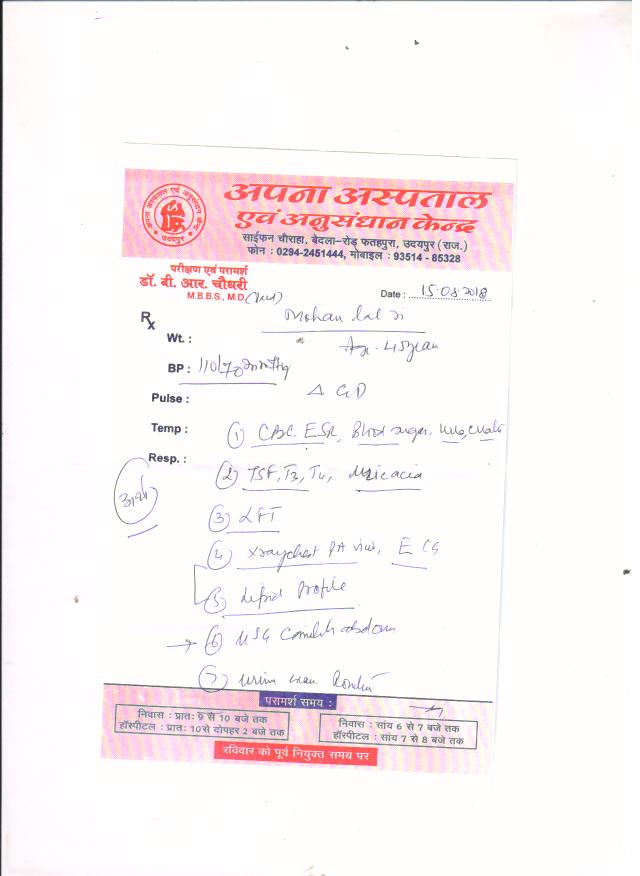 अपना अस्पताल एवं अनुसंधान केन्द्र
उदयपुर
अपना अस्पताल
एवं अनुसंधान केन्द्र
साईफन चौराहा, बेदला-रोड़ फतहपुरा, उदयपुर (राज.)
फोन : 0294-2451444, मोबाइल : 93514 - 85328
परीक्षण एवं परामर्श
डॉ. बी. आर. चौधरी
M.B.B.S., M.D.
Date : 15.08.2018
Rx
Mohan lal
Wt. :
BP : 110/70 mmHg
Pulse :
Δ
Temp :
① CBC. ESR, Blood sugar,
Resp. :
② T3, T4, Uric acid
③ LFT
④ Xray chest PA view, ECG
⑤ Lipid Profile
→ ⑥ USG abdomen
⑦ Urine
परामर्श समय :
निवास : प्रातः 9 से 10 बजे तक
हॉस्पीटल : प्रातः 10 से दोपहर 2 बजे तक
निवास : सांय 6 से 7 बजे तक
हॉस्पीटल : सांय 7 से 8 बजे तक
रविवार को पूर्व नियुक्त समय पर